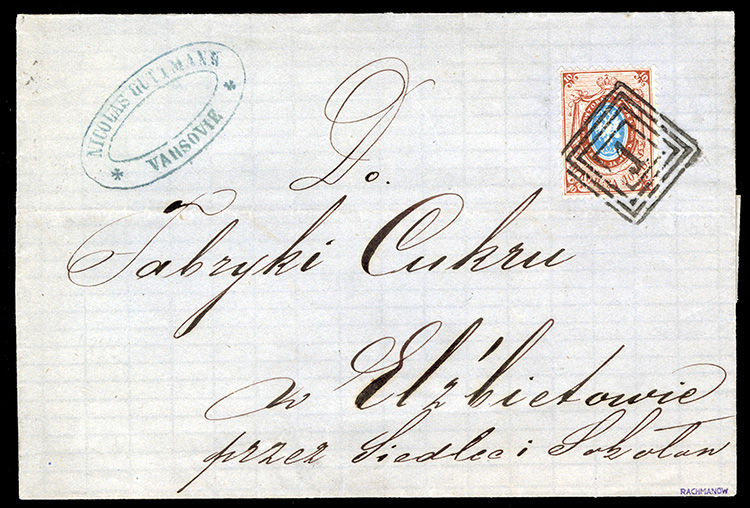 NICOLAS GUTTMANS
VARSOVIE
1
Do.
Fabryki Cukru
w Elżbietowie
przez Siedlce i Sokołow
RACHMANOW